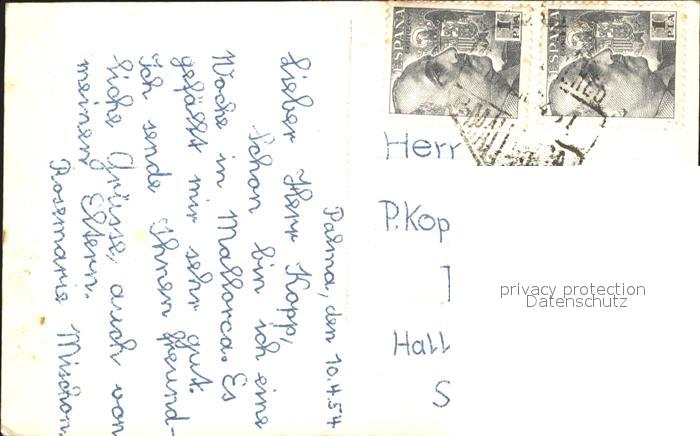 Palma, den 10.4.54
Lieber Herr Kopp,
Schon bin ich eine
Woche in Mallorca. Es
gefällt mir sehr gut.
Ich sende Ihnen freund-
liche Grüsse, auch von
meinen Eltern.
Rosemarie Mischon.
ESPAÑA
1
PTA
ESPAÑA
1
PTA
Herr
P. Kop
Hall
S
privacy protection
Datenschutz